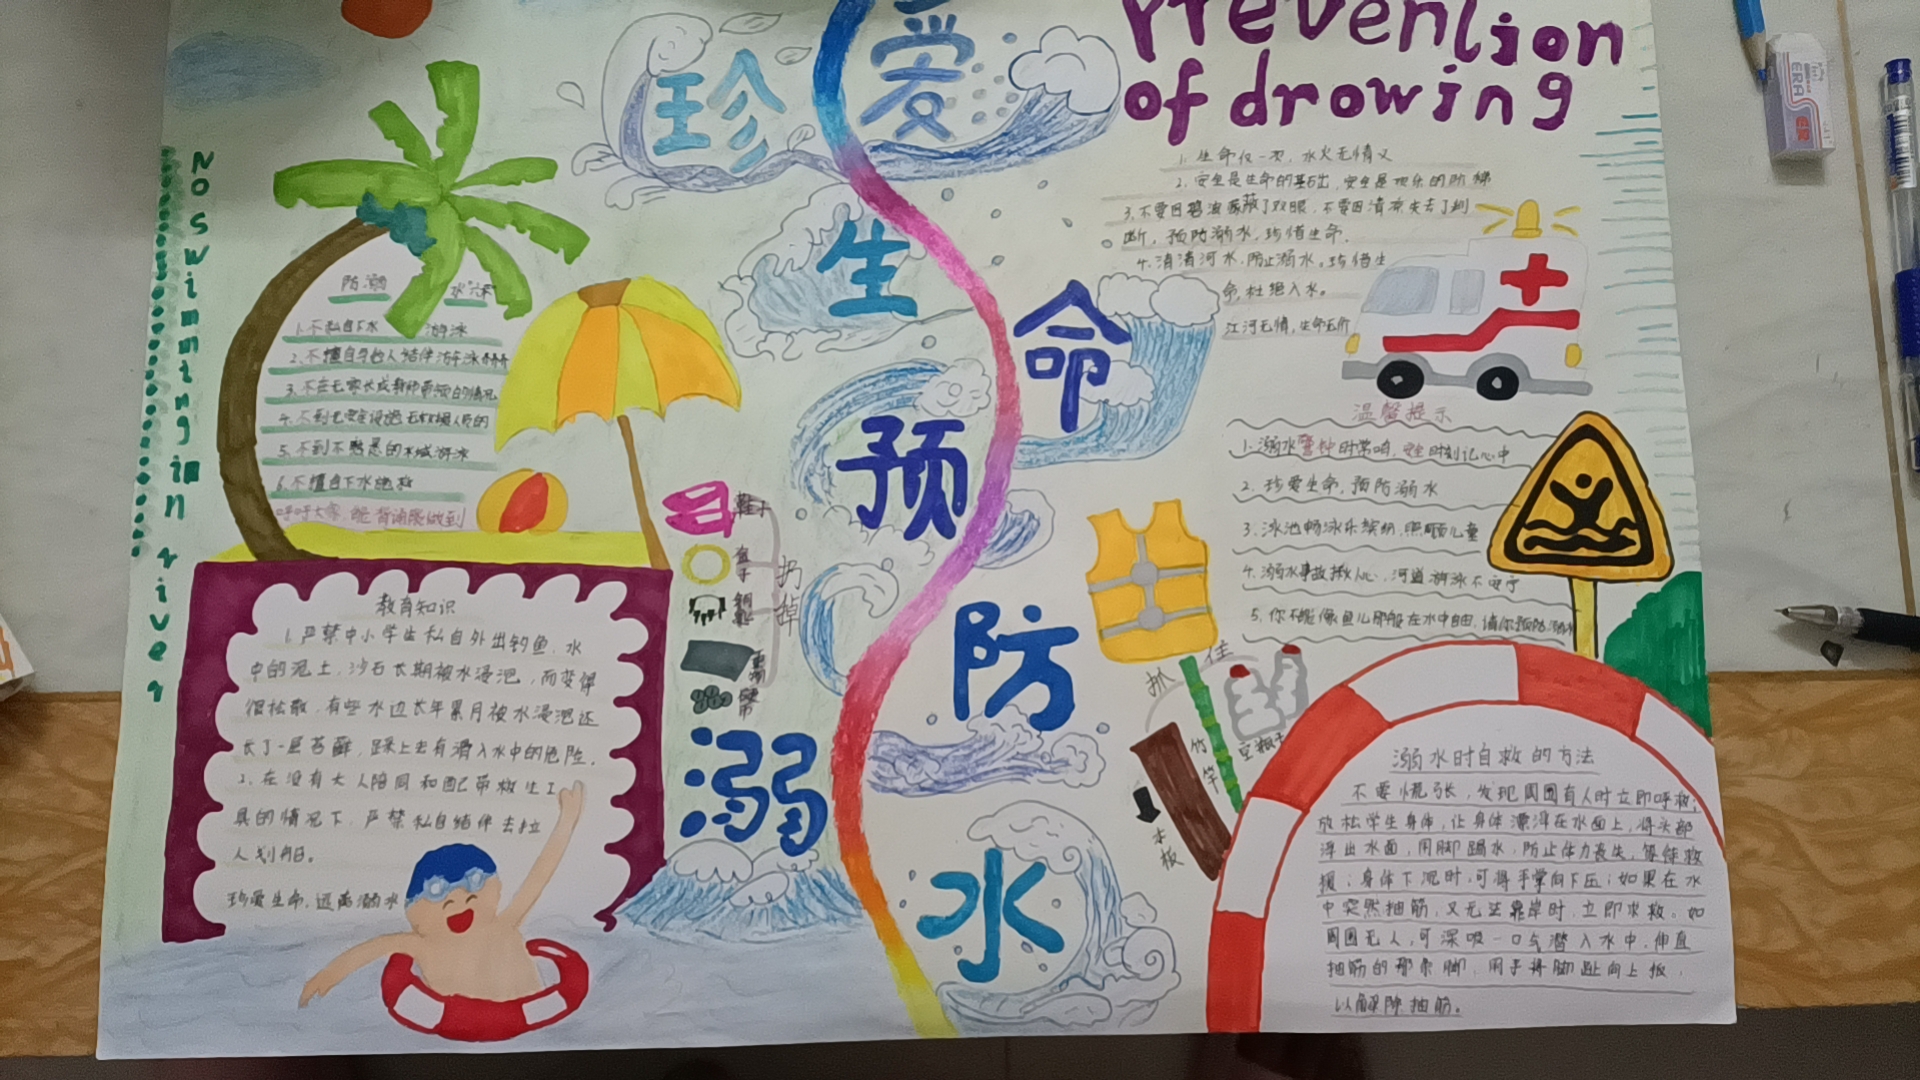 珍爱
生命
预防
溺水
Prevention
of drowing
No swimming in river
防溺水"六不"
1.不私自下水游泳
2.不擅自与他人结伴游泳
3.不在无家长或教师带领的情况
4.不到无安全设施无救援人员的
5.不到不熟悉的水域游泳
6.不擅自下水施救
教育知识
1.严禁中小学生私自外出钓鱼,水
中的泥土,沙石长期被水浸泡,而变得
很松散,有些水边长年累月被水浸泡还
长了一层苔藓,踩上去有滑入水中的危险。
2.在没有大人陪同和配带救生工
具的情况下,严禁私自结伴去
人划船。
珍爱生命,远离溺水
鞋子
盒子
钥匙
扔掉
抓住
竹竿
空瓶子
木板
1.生命仅一次,水火无情义
2.安全是生命的基础,安全是欢乐的阶梯
3.不要因碧波蒙蔽了双眼,不要因清凉失去了判
断,预防溺水,珍惜生命.
4.清清河水,防止溺水。珍惜生
命,杜绝入水。
江河无情,生命无价
温馨提示
1.溺水警钟时常鸣,安全时刻记心中
2.珍爱生命,预防溺水
3.泳池畅泳乐缤纷,照顾儿童
4.溺水事故揪人心,河道游泳不安宁
5.你不能像鱼儿那般在水中自由,请你预防溺水
ERA
溺水时自救的方法
不要慌张,发现周围有人时立即呼救;
放松学生身体,让身体漂浮在水面上,将头部
浮出水面,用脚踢水,防止体力丧失,等待救
援;身体下沉时,可将手掌向下压;如果在水
中突然抽筋,又无法靠岸时,立即求救。如
周围无人,可深吸一口气潜入水中,伸直
抽筋的那条腿,用手将脚趾向上扳,
以解除抽筋。